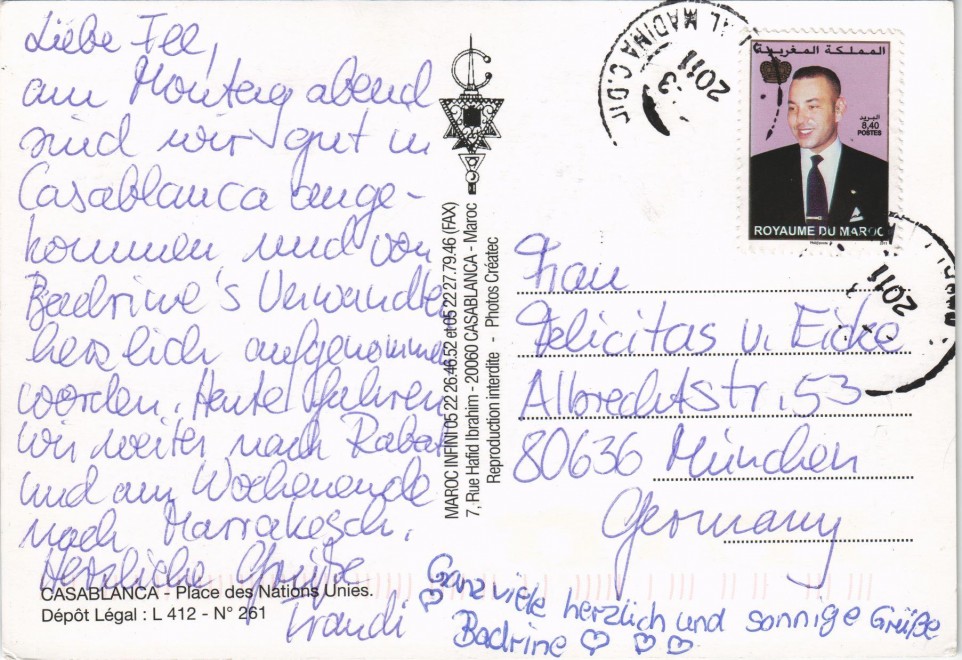 Liebe Fee,
am Montag abend
sind wir gut in
Casablanca ange-
kommen und von
Badrine's Verwandte
herzlich aufgenommen
worden. Heute fahren
wir weiter nach Rabat
und am Wochenende
nach Marrakesch.
Herzliche Grüße
Traudi
CASABLANCA - Place des Nations Unies.
Dépôt Légal : L 412 - N° 261
MAROC INFINI 05 22 26.46.52 et 05 22 27.79.46 (FAX)
7, Rue Hafid Ibrahim - 20060 CASABLANCA - Maroc
Reproduction interdite - Photos Créatec
AL MADINA C.D.
3
2011
المملكة المغربية
البريد
8,40
POSTES
ROYAUME DU MAROC
3
2011
Frau
Felicitas v. Eicke
Albrechtstr. 53
80636 München
Germany
Ganz viele herzlich und sonnige Grüße
Badrine